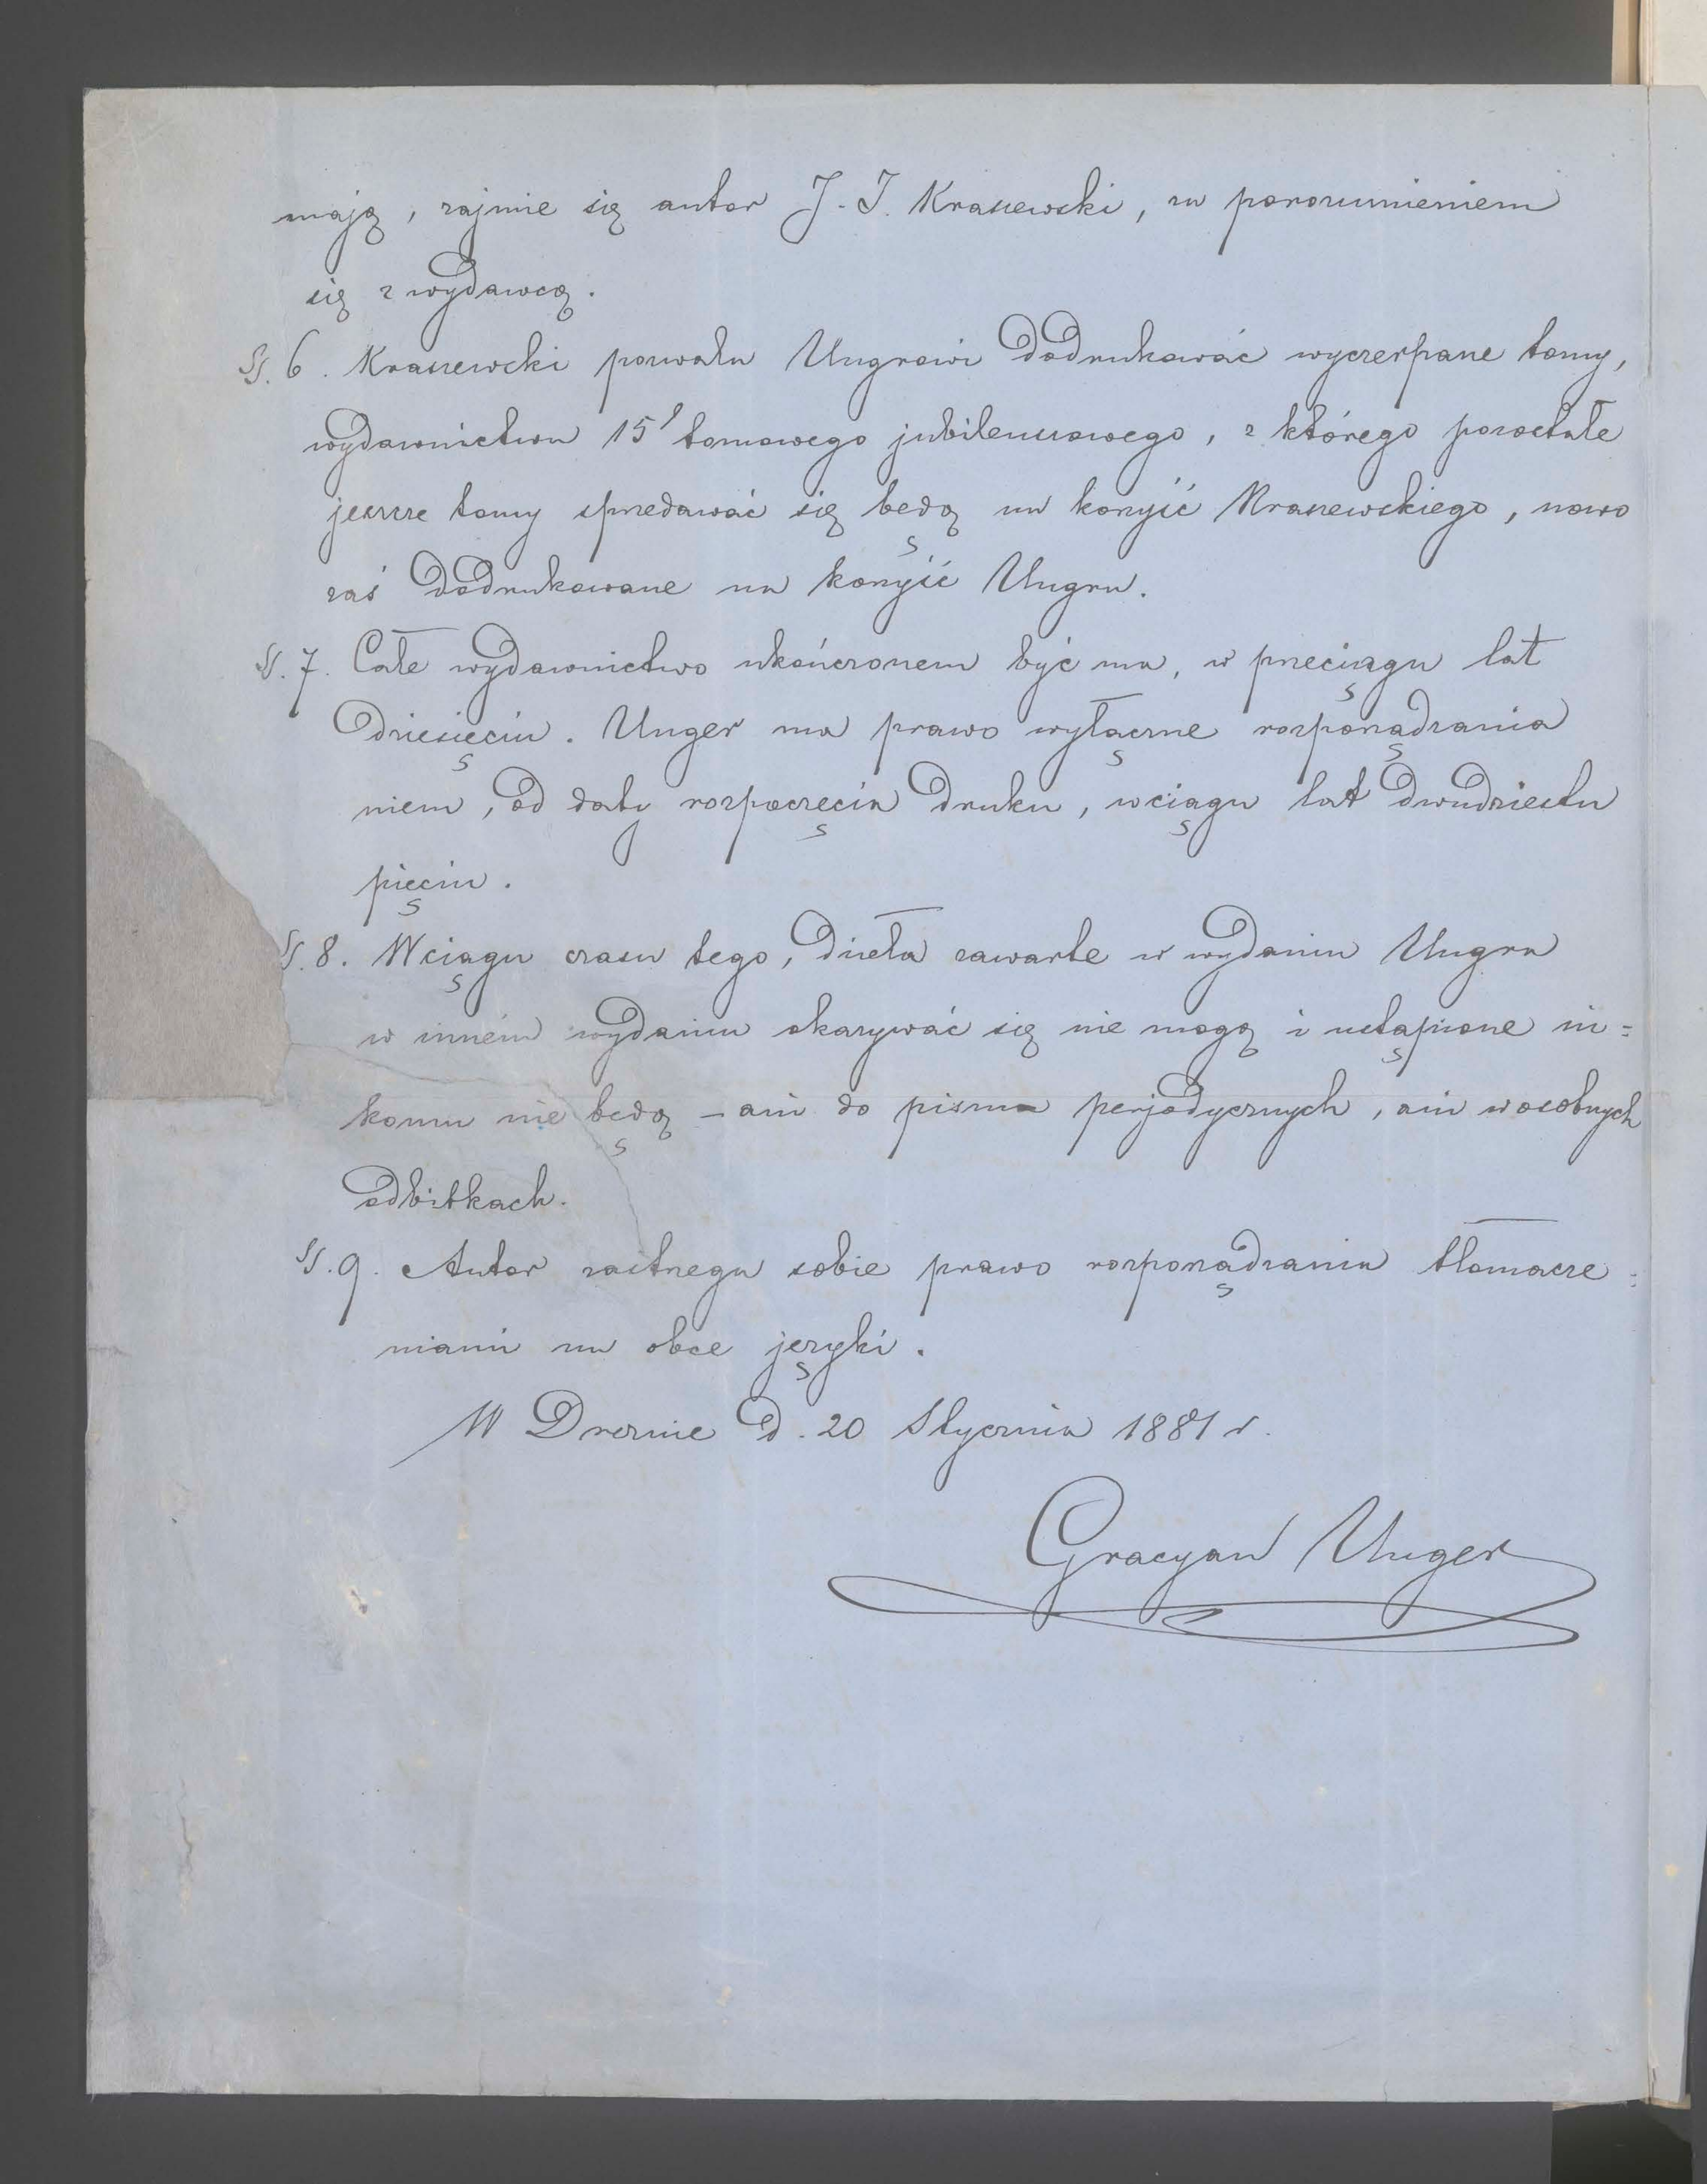 mają, zajmie się autor J. I. Kraszewski, za porozumieniem
się z wydawcą.
§. 6. Kraszewski pozwala Ungrowi dodrukować wyczerpane tomy,
wydawnictwa 15' tomowego jubileuszowego, z którego pozostałe
jeszcze tomy sprzedawać się będą na korzyść Kraszewskiego, nowo
zaś dodrukowane na korzyść Ungra.
§. 7. Całe wydawnictwo ukończonem być ma, w przeciągu lat
dziesięciu. Unger ma prawo wyłączne rozporządzania
niem, od daty rozpoczęcia druku, w ciągu lat dwudziestu
pięciu.
§. 8. W ciągu czasu tego, dzieła zawarte w wydaniu Ungra
w inném wydaniu okazywać się nie mogą i ustąpione ni=
komu nie będą – ani do pisma perjodycznych, ani w osobnych
odbitkach.
§. 9. Autor zastrzega sobie prawo rozporządzania tłomacze=
niami na obce języki.
W Dreznie d. 20 Stycznia 1881 r.
Gracyan Unger